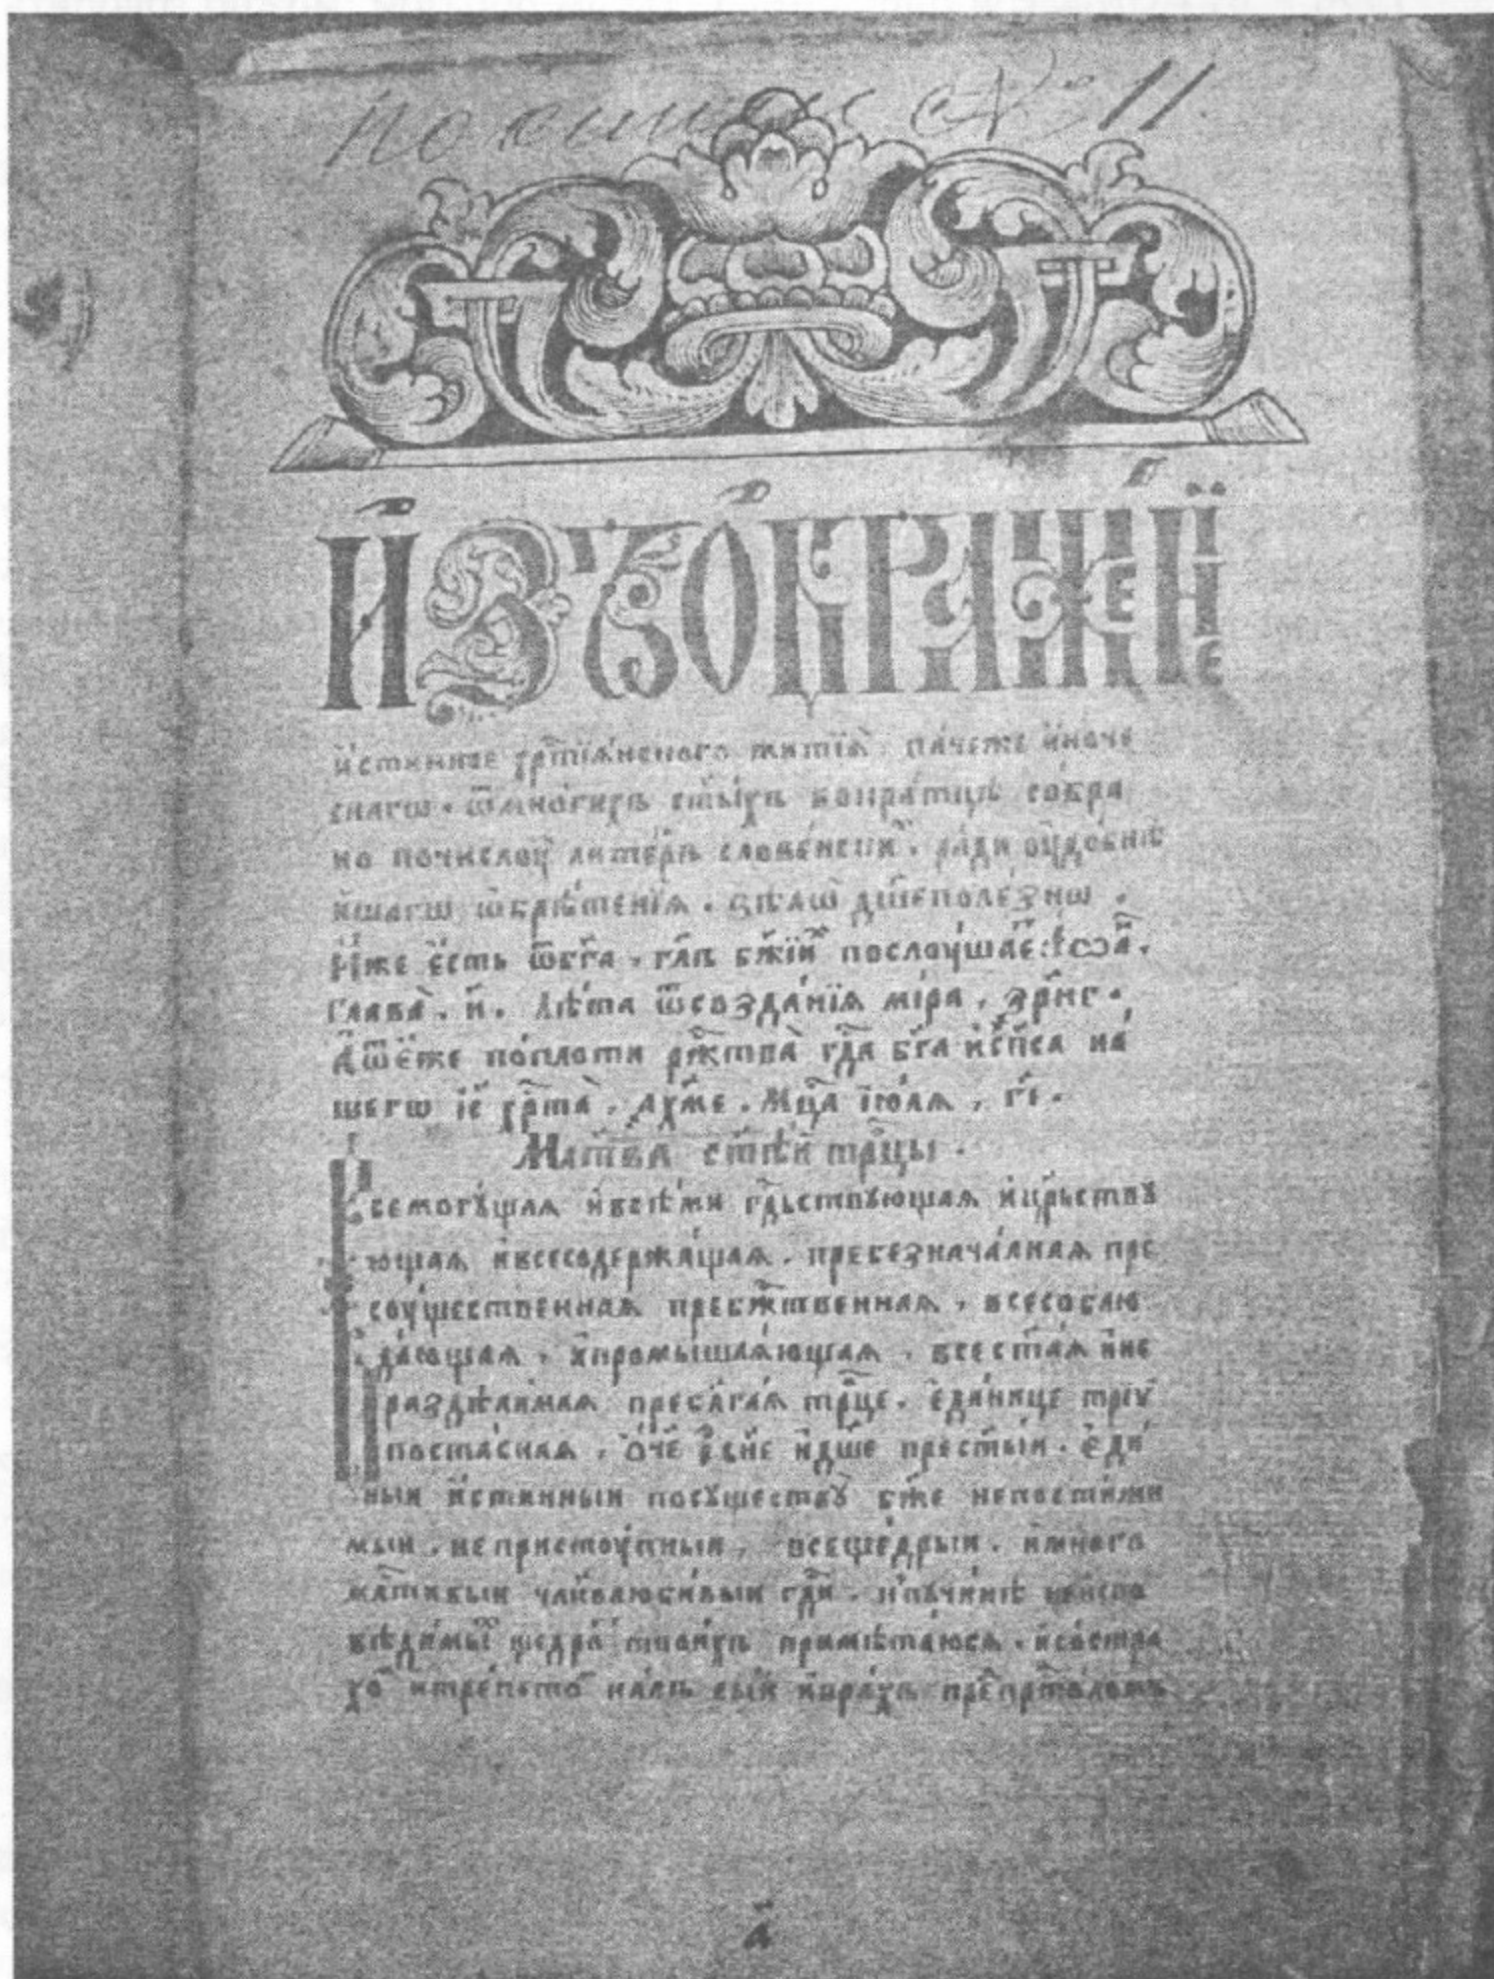 по описи № 11
И҆ЗЪѠБРАЖЕНЇЕ
и҆стиннаѡ хр҃тїѧ́нскаго житїѧ̀. па́чеже и҆ноче
скагѡ. ѿмно́гихъ ст҃ы́хъ вокра́тцѣ со́бра
но почислоу̀ литѣ́ръ слове́нски. ра́ди оу҆до́бнѣ
йшагѡ ѡ҆брѣ́тенїѧ. ѕѣлѡ̀ дш҃еполе́знѡ.
И҆́же є҆́сть ѿбг҃а. гл҃ъ бж҃їй послоу́шае.
глава̀. и҃. лѣ́та ѿсозда́нїѧ мі́ра. зрн҃г.
А҆ѿе҆́же по́плоти рж҃тва̀ гд҃а бг҃а и҆сп҃са на́
шегѡ і҆с҃ хр҃та̀. ахм҃е. Мц҃а і҆ю́лѧ. гі҃.
Мл҃тва ст҃ѣ́й тр҃цы.
Всемогꙋ́щаѧ и҆все́ми гд҃ьствꙋющаѧ и҆цр҃ьствꙋ
ющаѧ и҆вседержа́щаѧ. пребезнача́лнаѧ пре
соу́щественнаѧ пребж҃твеннаѧ. всесоблю
да́ющаѧ. и҆промышлѧ́ющаѧ. всест҃а́ѧ и҆не
раздѣли́маѧ пребл҃га́ѧ тр҃це. є҆ди́нице трїѵ
поста́снаѧ. ѻ҆́ч҃е и҆сн҃е и҆дш҃е прест҃ы́й. є҆ди́
ный и҆́стинный посꙋществꙋ̀ бж҃е непостижи
мый. непристоу́пный. всеще́дрый. и҆мно́гѡ
мл҃тивый чл҃колюби́вый гд҃и. и҆пꙋчи́нѣ неиспо
вѣди́мы щедро́ твои́хъ примѣта́юсѧ. и҆сѡстра́
хо и҆тре́пето на́лъ сый и҆пра́хъ пре пр҃то́ломъ
а҃